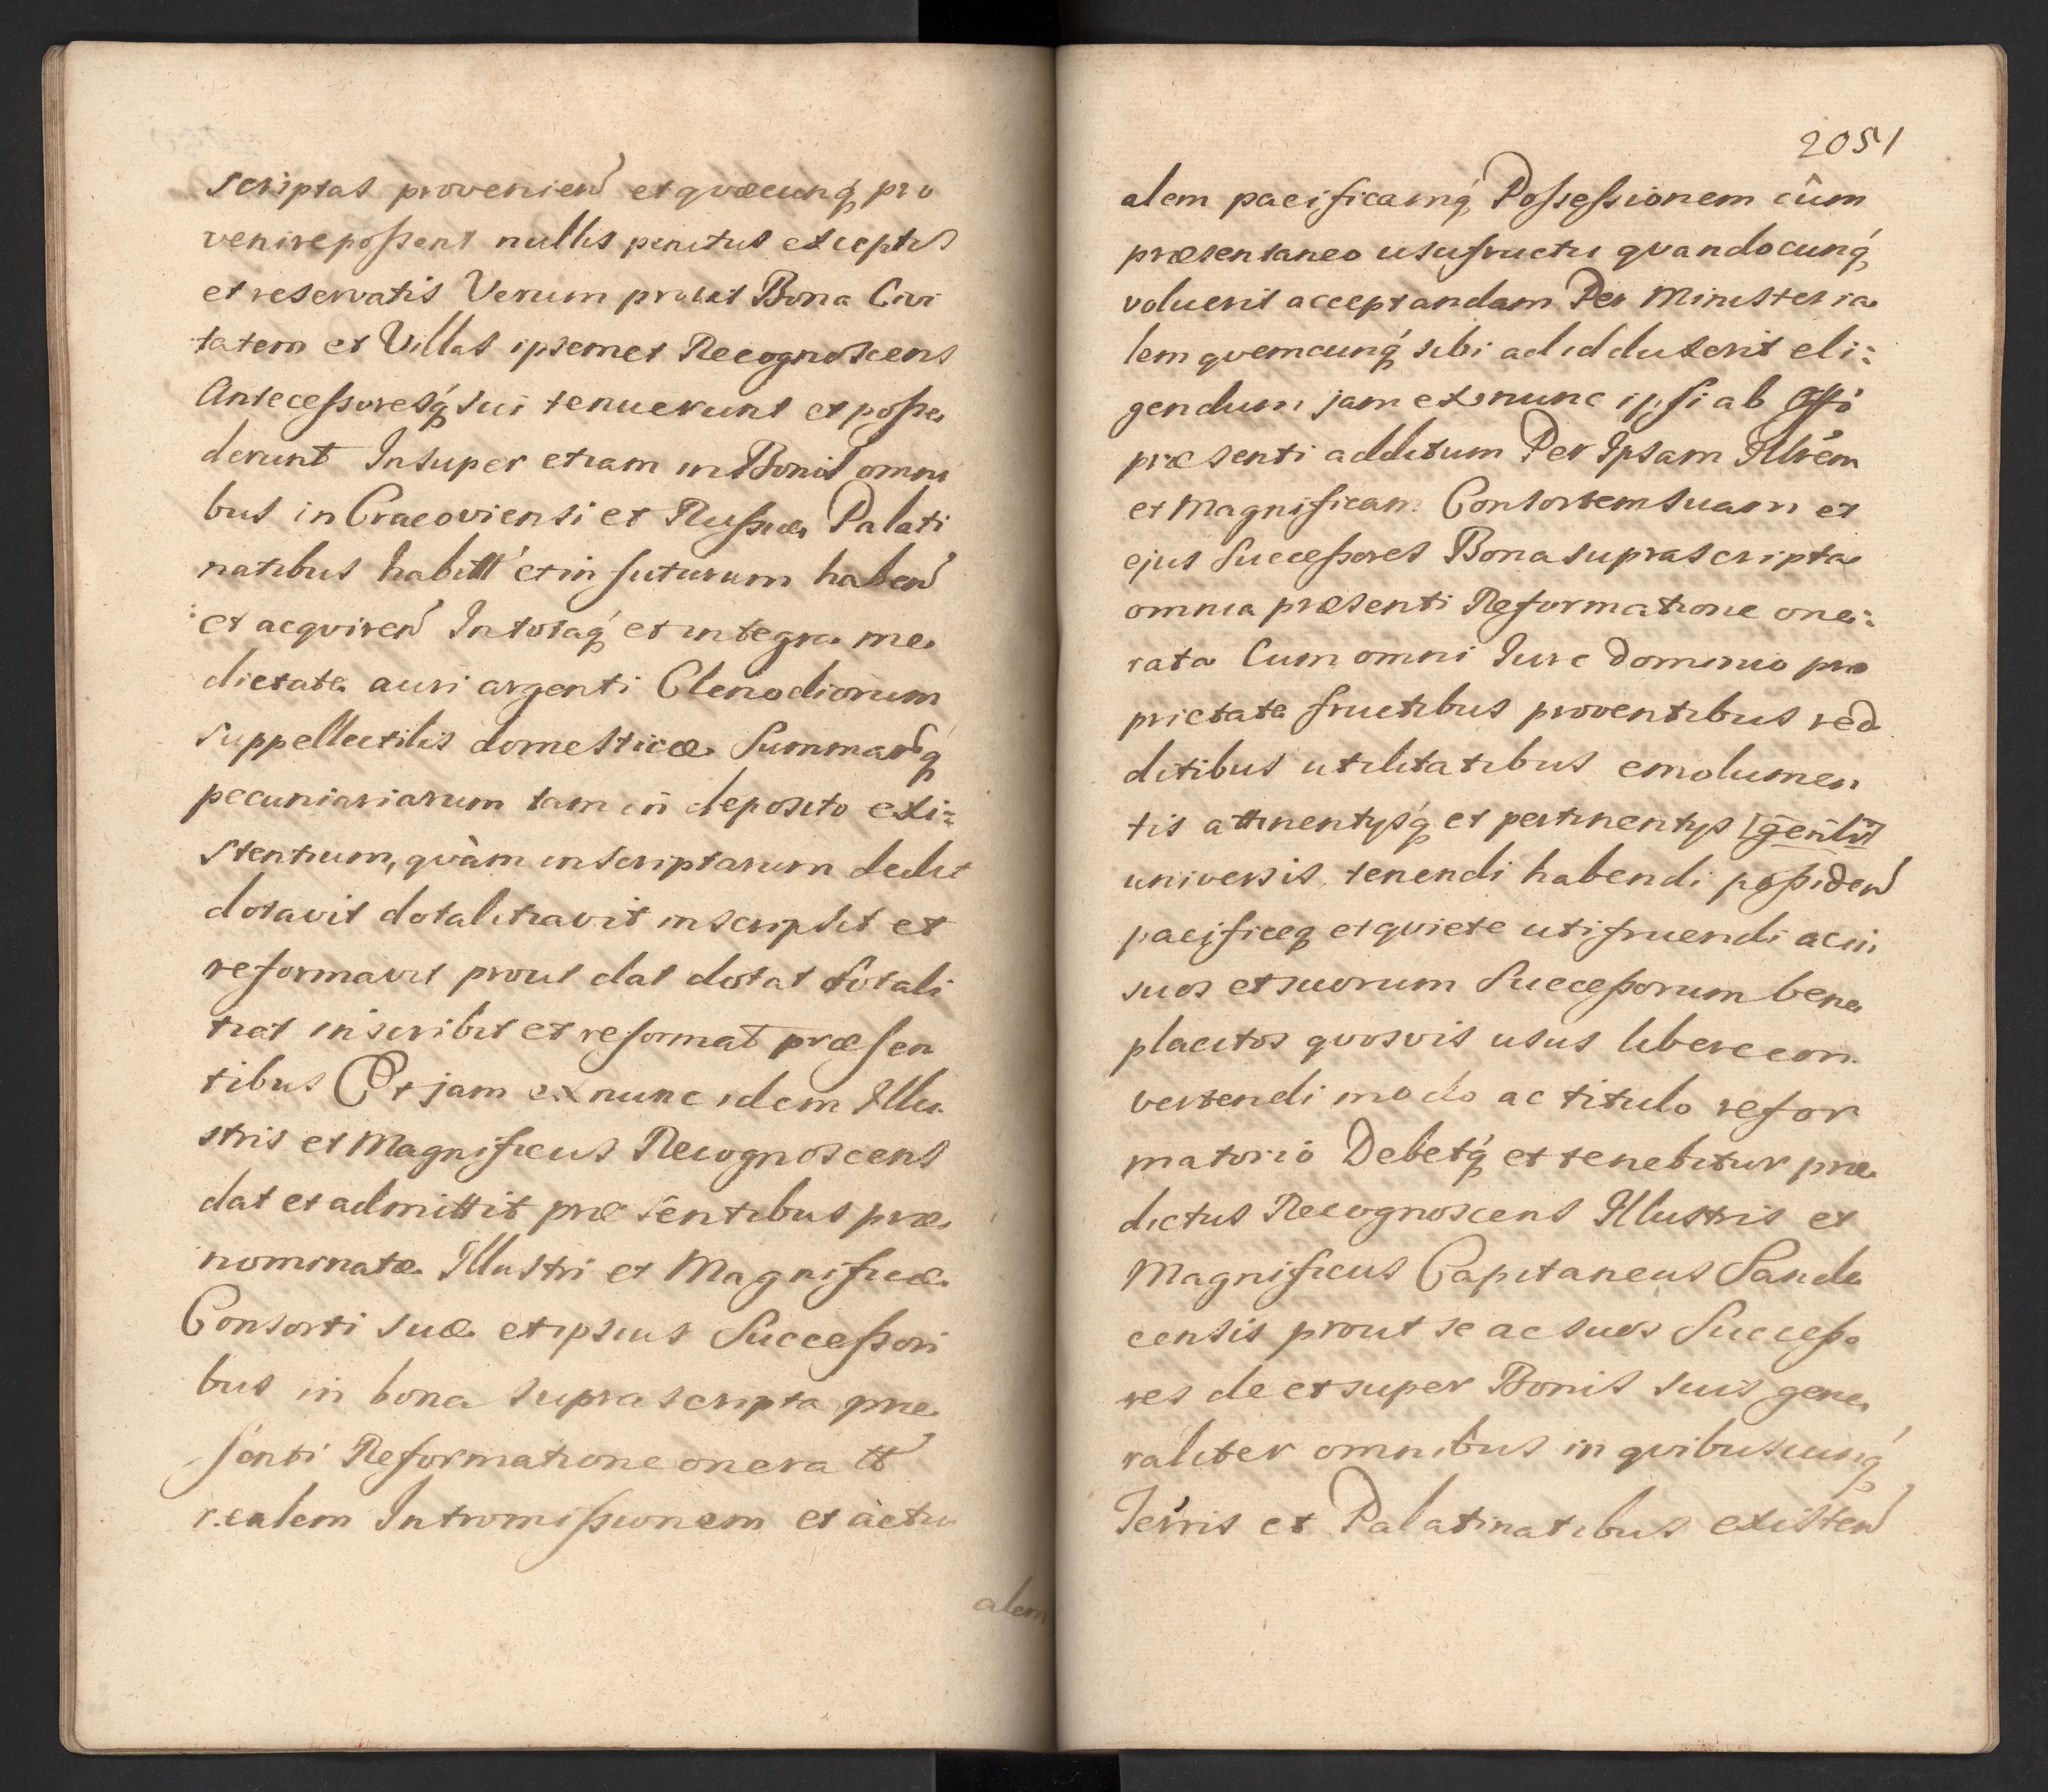 scriptas provenien̄ et qvæcunq́ pro
venire possent nullis penitus exceptis
et reservatis Verum prout Bona Civi
tatem et Villas ipsemet Recognoscens
Antecessoresq́ sui tenuerunt et posse
derunt Insuper etiam in Bonis omni
bus in Cracoviensi et Russiæ Palati
natibus habitt́ et in futurum haben̄
et acqviren̄ In totaq́ et integra me
dietate auri argenti Clenodiorum
suppellectilis domesticæ Summarq́
pecuniariarum tam in deposito exi=
stentium, qvàm inscriptarum dedit
dotavit dotalitiavit inscripsit et
reformavit prout dat dotat dotali
tiat inscribit et reformat præsen
tibus Et jam ex nunc idem Illu
stris et Magnificus Recognoscens
dat et admittit præsentibus præ
nominatæ Illustri et Magnificæ
Consorti suæ et ipsius Successori
bus in bona suprascripta præ
senti Reformatione onera tt
realem Intromissionem et actu
alem
2051
alem pacificamq́ Possessionem cûm
præsentaneo usufructu qvandocunq́
voluerit acceptandam Per Ministeria
lem qvemcunq́ sibi ad id duxerit eli=
gendum jam ex nunc ipsi ab Offo
præsenti additum Per Ipsam Illrem
et Magnificam Consortem suam et
ejus Successores Bona suprascripta
omnia præsenti Reformatione one=
rata Cum omni Iure Dominio pro
prietate fructibus proventibus red
ditibus utilitatibus emolumen
tis attinentysq́ et pertinentys genlit
universis tenendi habendi possiden̄
pacificeq́ et qviete utifruendi ac in
suos et suorum Successorum bene
placitos qvosvis usus libere con
vertendi modo ac titulo refor
matorio Debetq́ et tenebitur præ
dictus Recognoscens Illustris et
Magnificus Capitaneus Sande
censis prout se ac suos Successo
res de et super Bonis suis gene
raliter omnibus in qvibuscunq́
Terris et Palatinatibus existen̄